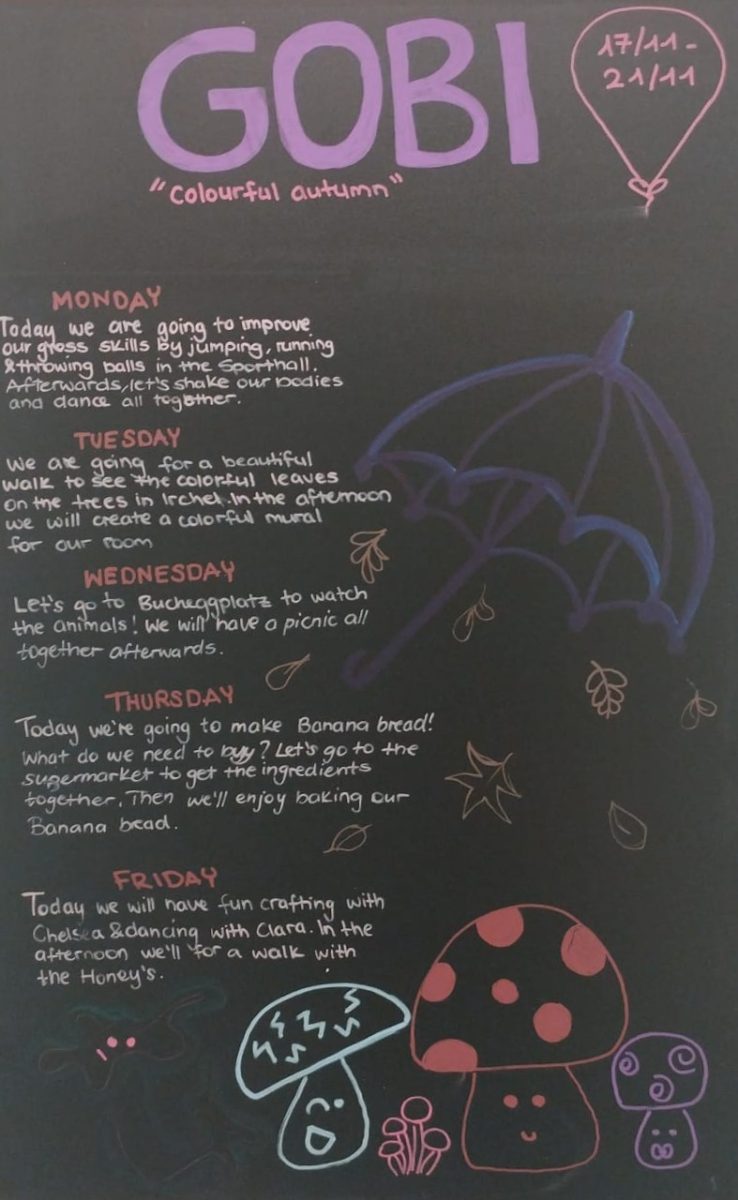 GOBI
17/11-
21/11
"colourful autumn"
MONDAY
Today we are going to improve
our gross skills by jumping, running
& throwing balls in the Sporthall.
Afterwards, let's shake our bodies
and dance all together.
TUESDAY
We are going for a beautiful
walk to see the colorful leaves
on the trees in Irchel. In the afternoon
we will create a colorful mural
for our room
WEDNESDAY
Let's go to Bucheggplatz to watch
the animals! We will have a picnic all
together afterwards.
THURSDAY
Today we're going to make Banana bread!
What do we need to buy? Let's go to the
supermarket to get the ingredients
together. Then we'll enjoy baking our
Banana bead.
FRIDAY
Today we will have fun crafting with
Chelsea & dancing with Clara. In the
afternoon we'll for a walk with
the Honey's.